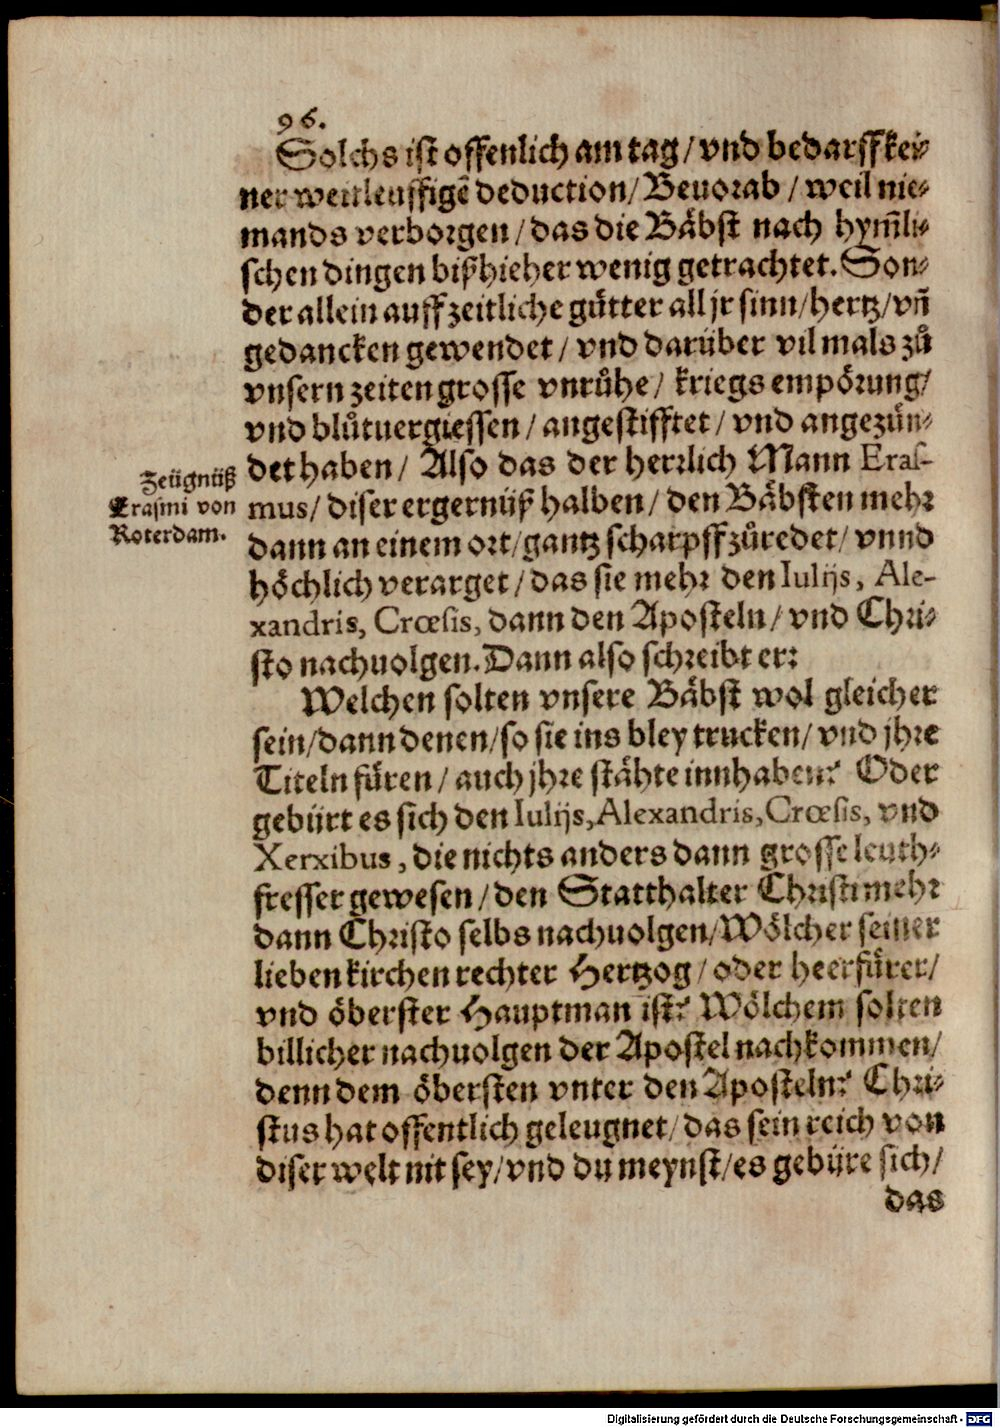 96.
Solchs ist offenlich am tag/ vnd bedarff kei-
ner weitleuffigẽ deduction/ Beuorab/ weil nie-
mands verborgen/ das die Bäbst nach hym̃li-
schen dingen bißhieher wenig getrachtet. Son-
der allein auff zeitliche gütter all jr sinn/ hertz/ vñ
gedancken gewendet/ vnd darüber vilmals zů
vnsern zeiten grosse vnrůhe/ kriegs empörung/
vnd blůtuergiessen/ angestifftet/ vnd angezün-
det haben/ Also das der herrlich Mann Eras-
Zeügnüß
Erasmi von
Roterdam.
mus/ diser ergernüß halben/ den Bäbsten mehr
dann an einem ort/ gantz scharpff zůredet/ vnnd
höchlich verarget/ das sie mehr den Iulijs, Ale-
xandris, Crœsis, dann den Aposteln/ vnd Chri-
sto nachuolgen. Dann also schreibt er:
Welchen solten vnsere Bäbst wol gleicher
sein/ dann denen/ so sie ins bley trucken/ vnd jhre
Titeln füren/ auch jhre stähte innhaben? Oder
gebürt es sich den Iulijs, Alexandris, Crœsis, vnd
Xerxibus, die nichts anders dann grosse leuth-
fresser gewesen/ den Statthalter Christi mehr
dann Christo selbs nachuolgen/ Wölcher seiner
lieben kirchen rechter Hertzog/ oder heerfürer/
vnd öberster Hauptman ist? Wölchem solten
billicher nachuolgen der Apostel nachkommen/
denn dem öbersten vnter den Aposteln? Chri-
stus hat offentlich geleugnet/ das sein reich von
diser welt nit sey/ vnd du meynst/ es gebüre sich/
das
Digitalisierung gefördert durch die Deutsche Forschungsgemeinschaft - DFG